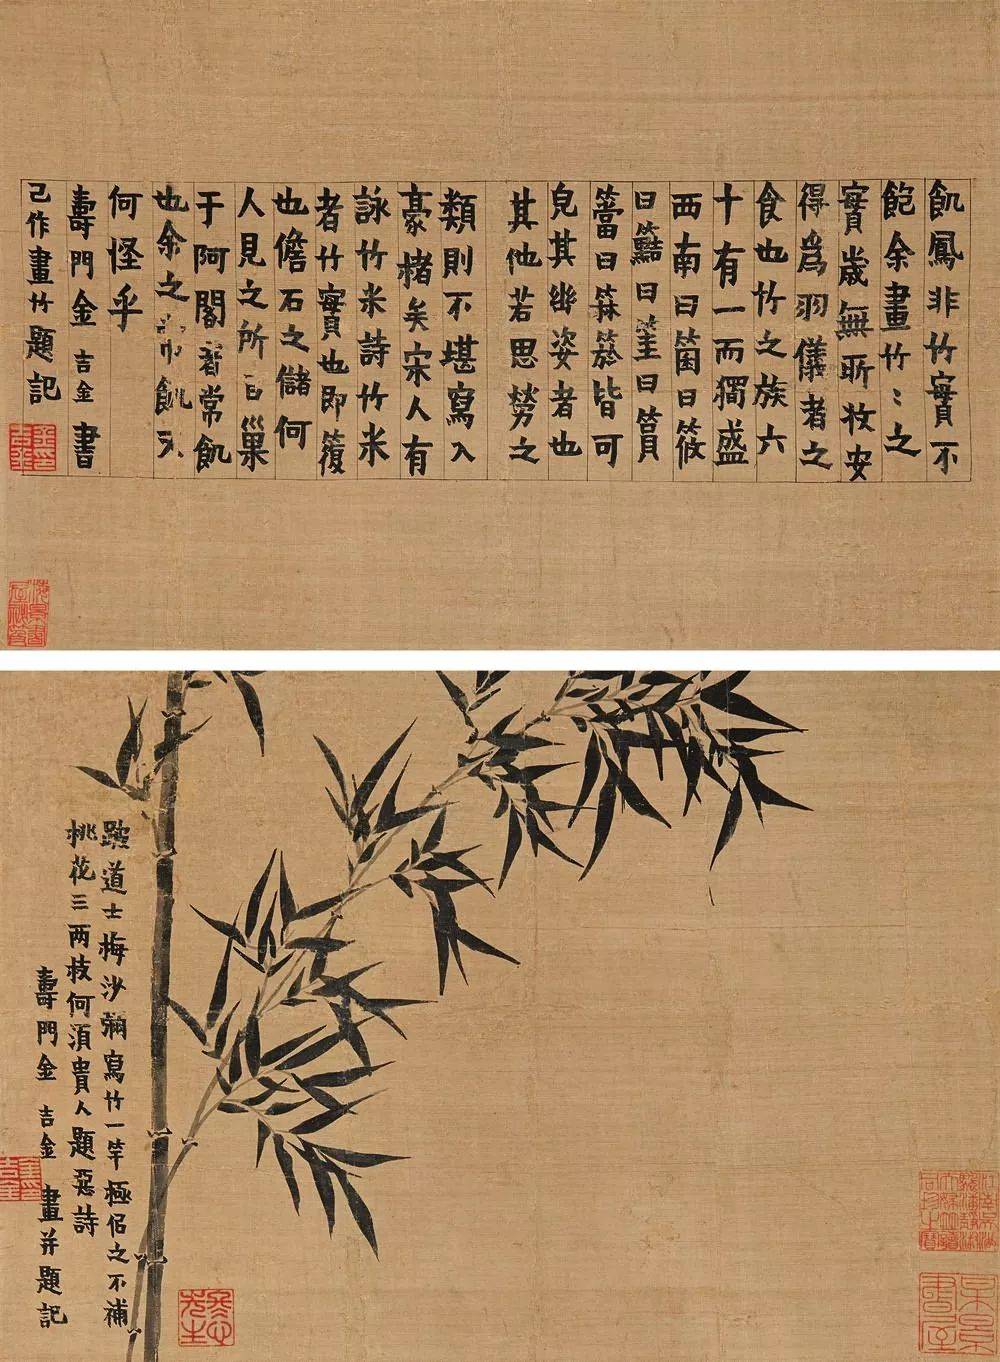 飢鳳非竹實不
飽余畫竹:之
實歲無所收安
得為羽儀者之
食也竹之族六
十有一而獨盛
西南曰箘曰筱
曰䈌曰筀曰篔
簹曰箖箊皆可
皃其幽姿者也
其他若思簩之
類則不堪寫入
豪楮矣宋人有
詠竹米詩竹米
者竹實也即復
也儋石之儲何
人見之所
巢
于阿閣者常飢
也余之
飢又
何怪乎
壽門金吉金書
己作畫竹題記
跛道士梅沙彌寫竹一竿極侶之不補
桃花三兩枝何須貴人題惡詩
壽門金吉金畫并題記